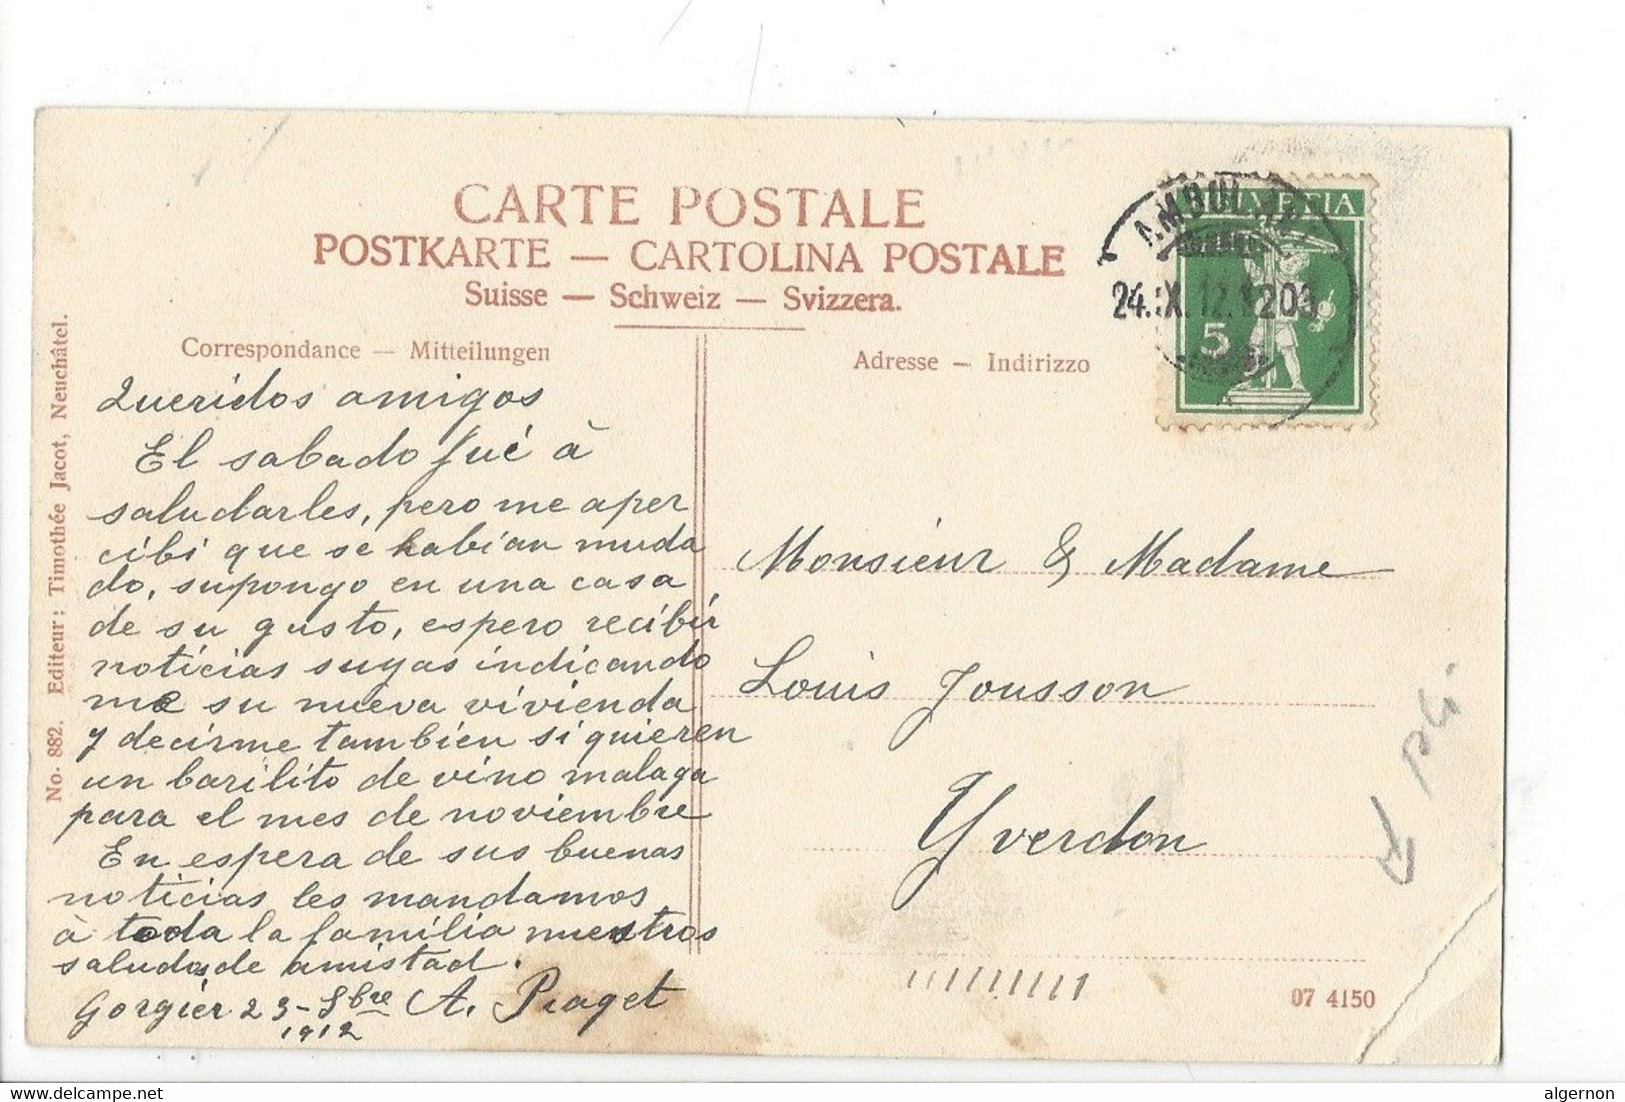 CARTE POSTALE
POSTKARTE — CARTOLINA POSTALE
Suisse — Schweiz — Svizzera.
Correspondance — Mitteilungen
Adresse — Indirizzo
No. 882. Editeur: Timothée Jacot, Neuchâtel.
HELVETIA
5
AMBULANT
24.IX.12.
Queridos amigos
El sabado fué à
saludarles, pero me aper
cibi que se habian muda
do, supongo en una casa
de su gusto, espero recibir
noticias suyas indicando
me su nueva vivienda
y decirme tambien si quieren
un barilito de vino malaga
para el mes de noviembre
En espera de sus buenas
noticias les mandamos
à toda la familia nuestros
saludos de amistad.
Gorgier 23-8bre A. Piaget
1912
Monsieur & Madame
Louis Jousson
Yverdon
07 4150
algernon